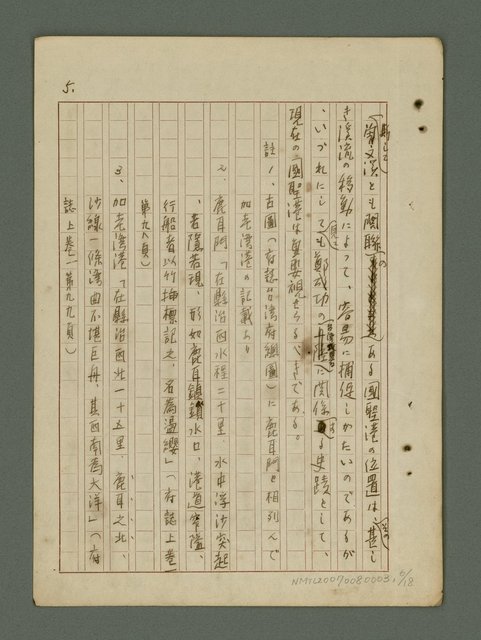 5.
曾文溪とも関聯のある國聖港の位置は、甚しき
溪流の移動によって、容易に捕捉しがたいのであるが
、いづれにしても鄭成功の に関係する史蹟として、
現在の國聖港は重要視せらるべきである。
註1、古圖（府誌台湾府總圖）に鹿耳門と相列んで
加老湾港の記載あり
2、鹿耳門「在縣治西水程二十里、水中浮沙突起
、若隱若現、形如鹿耳鎮鎖水口、港道窄隘、
行船者以竹 標記之、名為盪纓」（府誌上卷
第九八頁）
3、加老湾港「在縣治西北一十五里、鹿耳之北、
沙線一條湾曲不堪巨舟、其西南為大洋」（府
誌上卷 第九九頁）
NMTL20070080003, 6/18